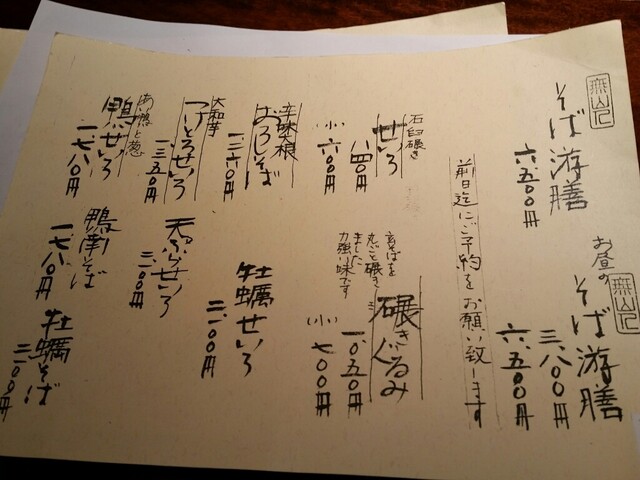 そば游膳
六、五〇〇円
お昼の
そば游膳
三、八〇〇円
六、五〇〇円
前日迄にご予約をお願い致します
石臼碾き
せいろ
八四〇円
(小)六〇〇円
碾きぐるみ
玄そばを
丸ごと碾き
ました
力強い味です
一、〇五〇円
(小)七〇〇円
辛味大根
おろしそば
一、二六〇円
牡蠣せいろ
二、一〇〇円
大和芋
つけとろせいろ
一、三五〇円
天ぷらせいろ
あい鴨と葱
鴨せいろ
一、七八〇円
鴨南そば
一、七八〇円
牡蠣そば
二、一〇〇円